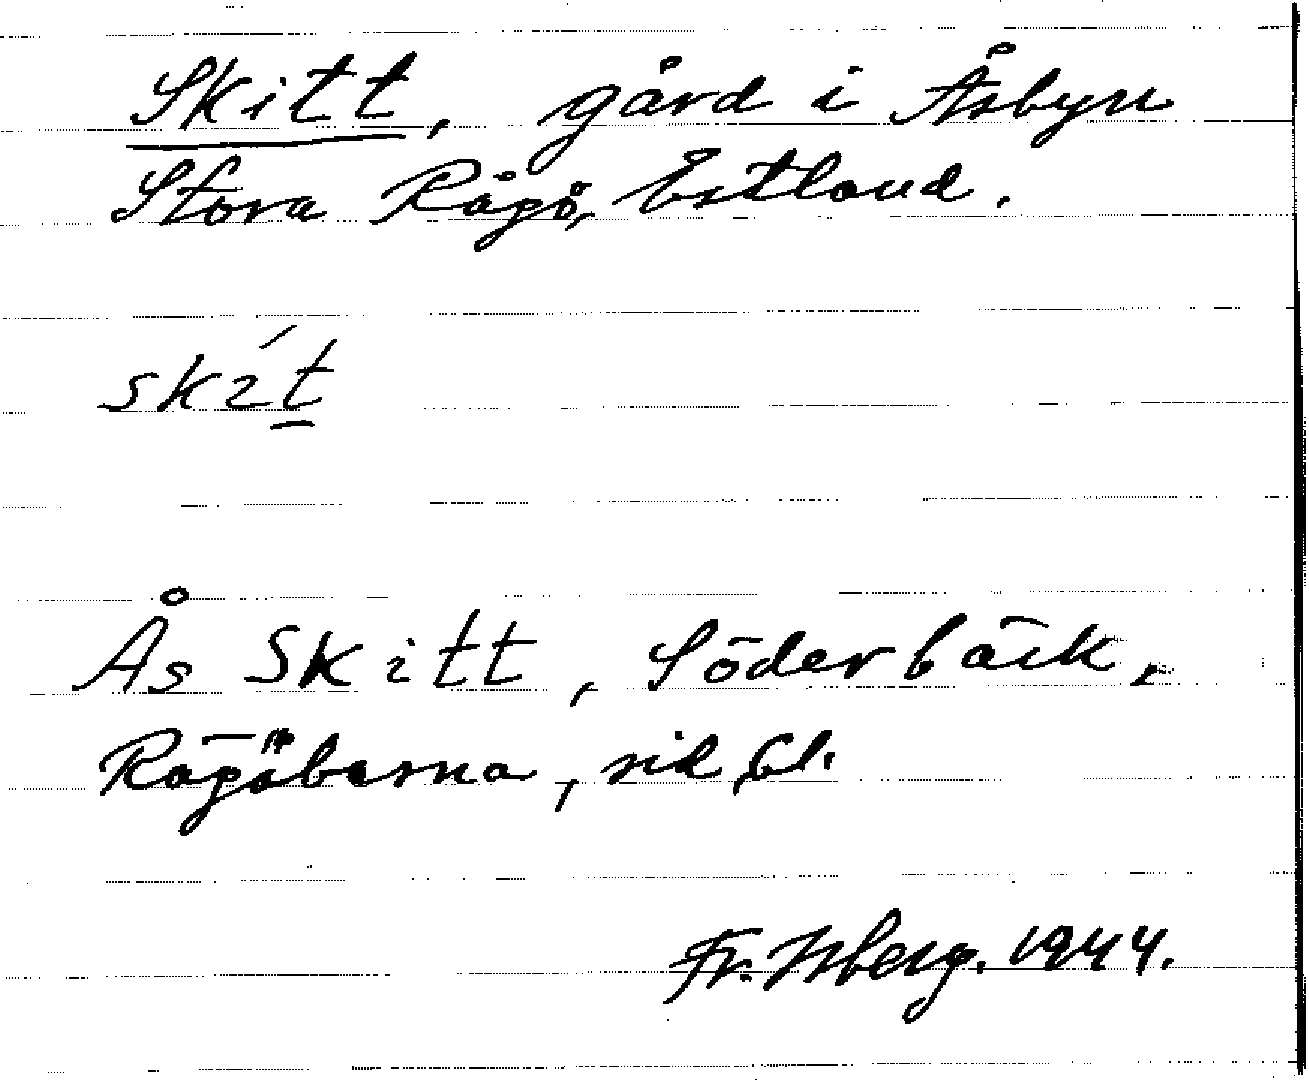 Skitt, gård i Åsbyn
Stora Rågö, Estland.
skít
Ås Skitt, Söderbäck,
Rågöbarna, sid 61.
Fr. Isberg. 1944.